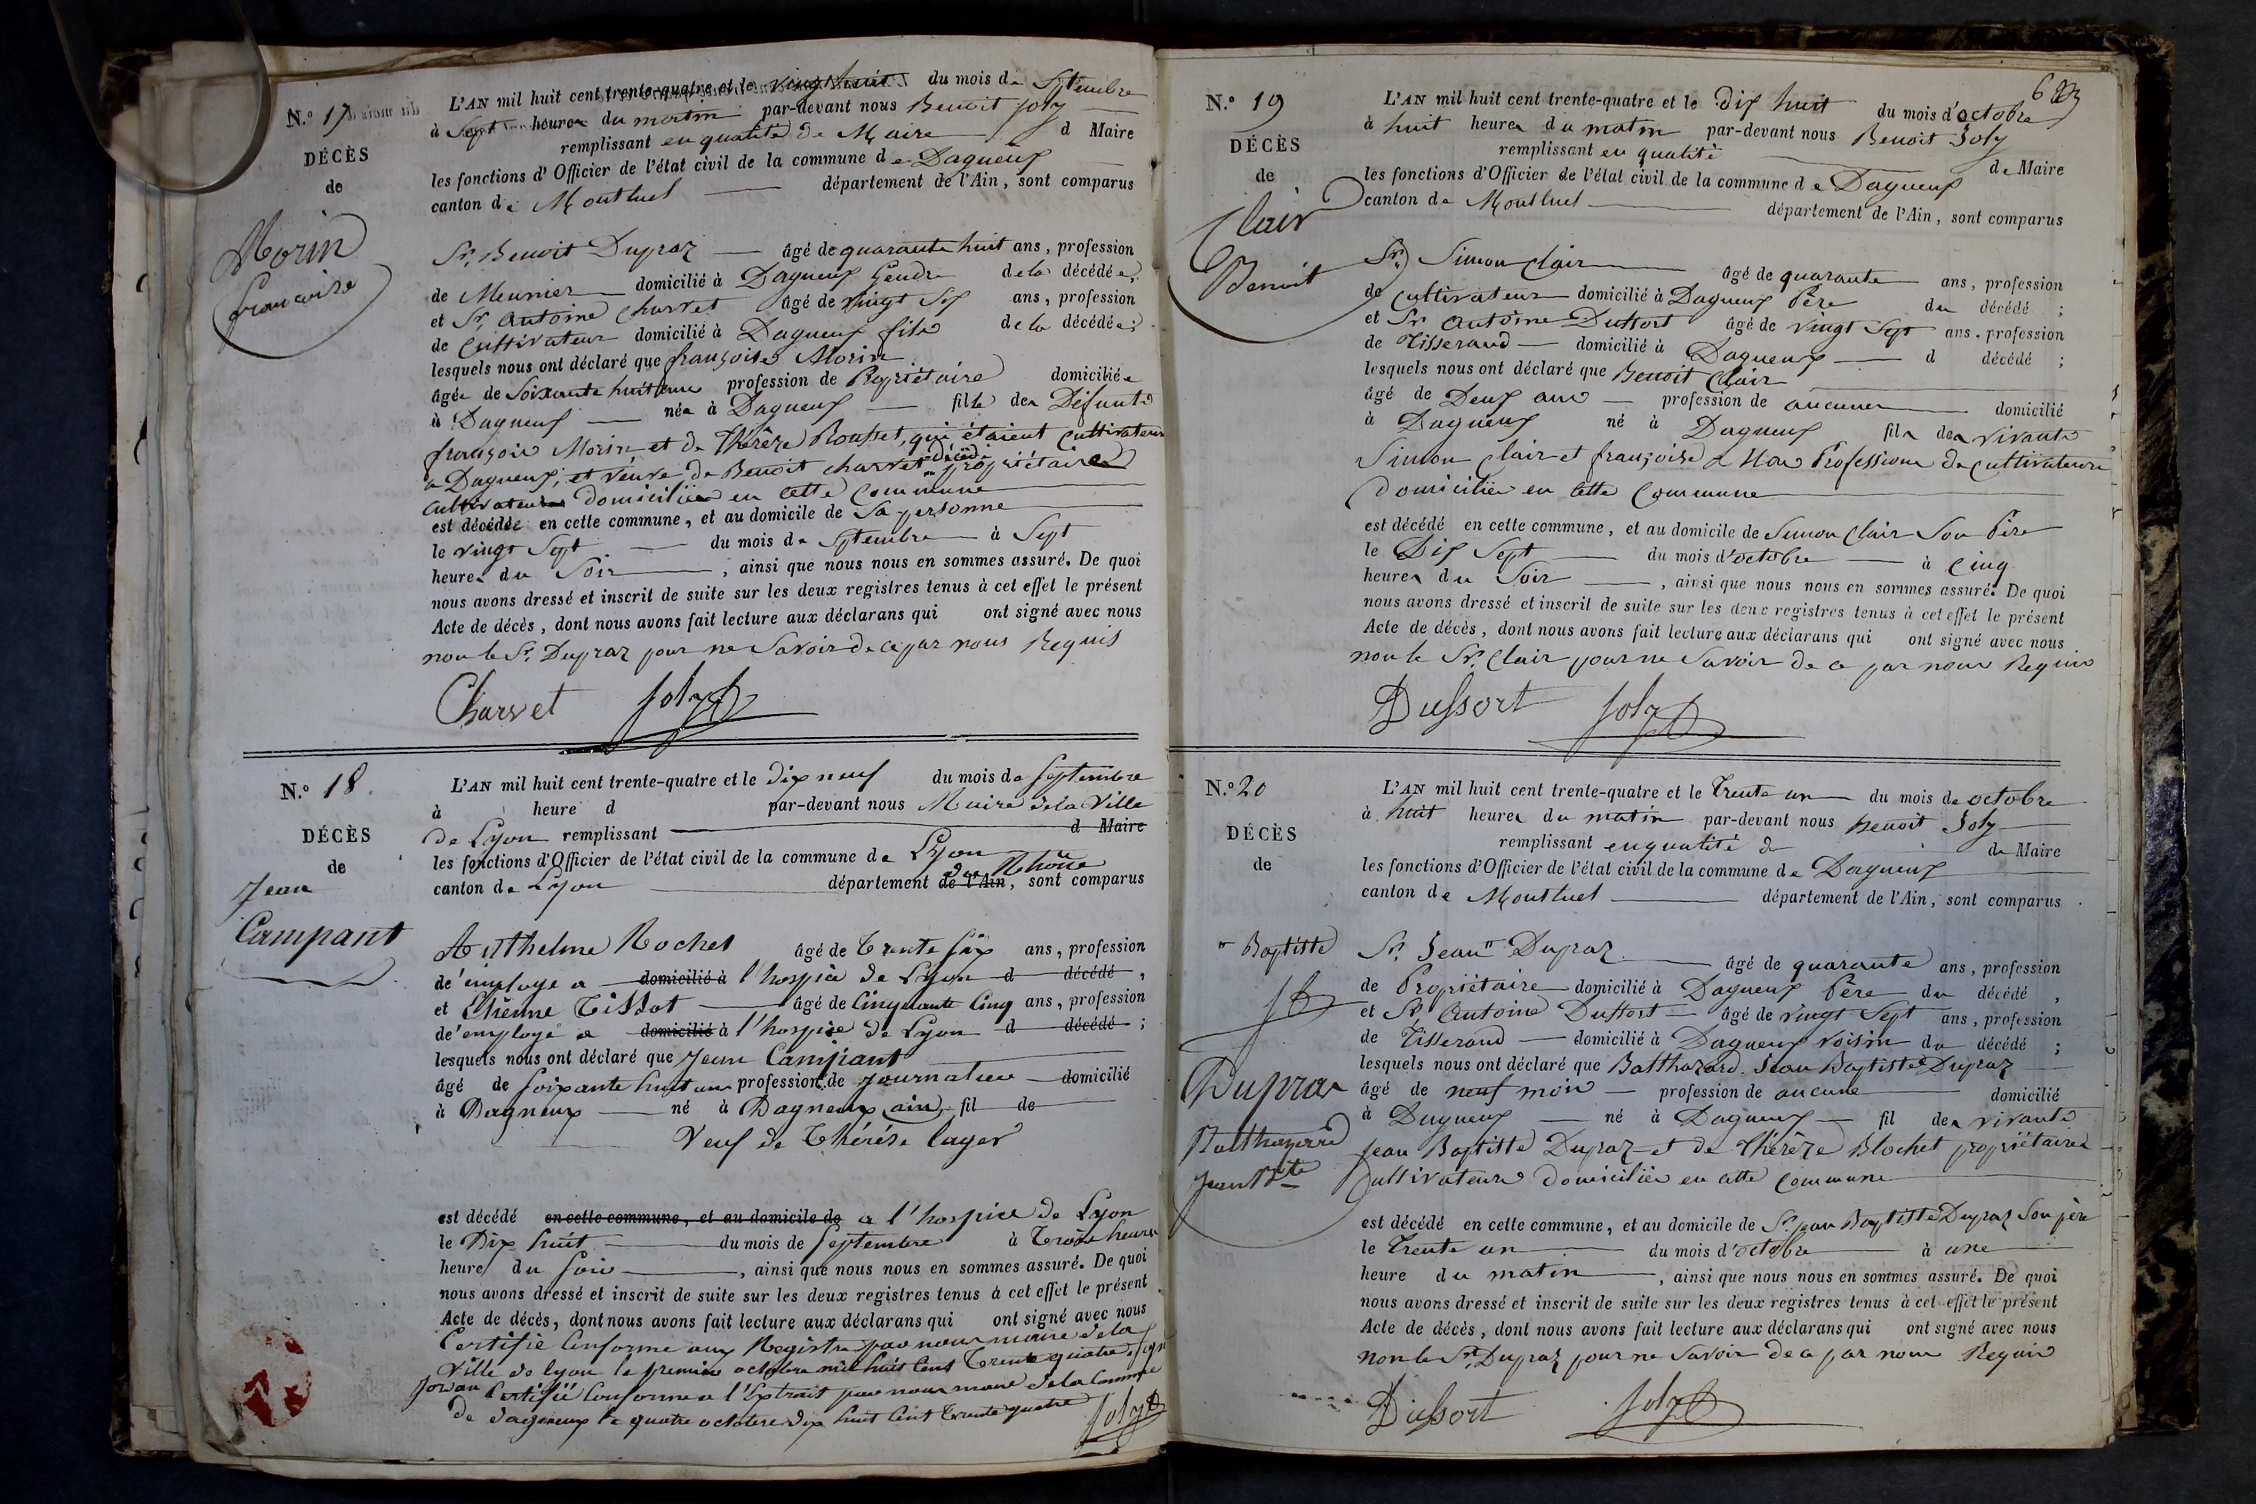 N.º 17
DÉCÈS
de
Morin
françoise
L'AN mil huit cent trente-quatre et le vingt huit du mois de Septembre
à Sept heures du matin par-devant nous Benoit Joly
remplissant en qualité de Maire d Maire
les fonctions d'Officier de l'état civil de la commune de Dagneux
canton de Montluel département de l'Ain, sont comparus
Sr. Benoit Dupraz âgé de quarante huit ans, profession
de Meunier domicilié à Dagneux Gendre de la décédée,
et Sr. Antoine Charvet âgé de vingt Six ans, profession
de Cultivateur domicilié à Dagneux fils de la décédée;
lesquels nous ont déclaré que françoise Morin
âgée de Soixante huit ans profession de Propriétaire domiciliée
à Dagneux née à Dagneux fille des Défunts
françois Morin et de Thérèze Rousset, qui étaient Cultivateurs
a Dagneux, et veuve de Benoit Charvet décédé propriétaire
Cultivateurs domiciliée en cette Commune
est décédée en cette commune, et au domicile de Sa personne
le vingt Sept du mois de Septembre à Sept
heures du Soir, ainsi que nous nous en sommes assuré. De quoi
nous avons dressé et inscrit de suite sur les deux registres tenus à cet effet le présent
Acte de décès, dont nous avons fait lecture aux déclarans qui ont signé avec nous
non le Sr. Dupraz pour ne Savoir de ce par nous Requis
Charvet Joly
N.º 18.
DÉCÈS
de
Jean
Campant
L'AN mil huit cent trente-quatre et le dix neuf du mois de Septembre
à heure d par-devant nous Maire de la Ville
de Lyon remplissant d Maire
les fonctions d'Officier de l'état civil de la commune de Lyon
du Rhône
canton de Lyon département de l'Ain, sont comparus
Anthelme Rochet âgé de Trente Six ans, profession
de employé a domicilié à l'hospice de Lyon d décédé,
et Etienne Tissot âgé de Cinquante Cinq ans, profession
de employé a domicilié à l'hospice de Lyon d décédé;
lesquels nous ont déclaré que Jean Campant
âgé de Soixante huit ans profession de Journalier domicilié
à Dagneux né à Dagneux ain, fil de
Veuf de Thérése layer
est décédé en cette commune, et au domicile de a l'hospice de Lyon
le Dix huit du mois de Septembre à Trois heures
heure du Soir, ainsi que nous nous en sommes assuré. De quoi
nous avons dressé et inscrit de suite sur les deux registres tenus à cet effet le présent
Acte de décès, dont nous avons fait lecture aux déclarans qui ont signé avec nous
Certifié Conforme aux Registres par nous maire de la
Ville de Lyon le premier octobre mil huit Cent Trente quatre, signé
Certifié Conforme a l'Extrait par nous maire de la Commune
de dagneux le quatre octobre dix huit Cent Trente quatre Joly
N.º 19
DÉCÈS
de
Clair
Benoit
L'AN mil huit cent trente-quatre et le dix huit du mois d'octobre
à huit heures du matin par-devant nous Benoit Joly
remplissant en qualité de Maire
les fonctions d'Officier de l'état civil de la commune de Dagneux
canton de Montluel département de l'Ain, sont comparus
Sr. Simon Clair âgé de quarante ans, profession
de Cultivateur domicilié à Dagneux Père du décédé;
et Sr. Antoine Dussort âgé de vingt Sept ans, profession
de Tisserand domicilié à Dagneux d décédé;
lesquels nous ont déclaré que Benoit Clair
âgé de Deux ans profession de aucune domicilié
à Dagneux né à Dagneux fils des vivants
Simon Clair et françoise Professions de Cultivateurs
domiciliés en cette Commune
est décédé en cette commune, et au domicile de Simon Clair Son Père
le Dix Sept du mois d'octobre à Cinq
heures du Soir, ainsi que nous nous en sommes assuré. De quoi
nous avons dressé et inscrit de suite sur les deux registres tenus à cet effet le présent
Acte de décès, dont nous avons fait lecture aux déclarans qui ont signé avec nous
non le Sr. Clair pour ne Savoir de ce par nous Requis
Dussort Joly
N.º 20
DÉCÈS
de
" Baptiste
Dupraz
Balthazard
Jean Bte
L'AN mil huit cent trente-quatre et le Trente un du mois de octobre
à huit heures du matin par-devant nous Benoit Joly
remplissant en qualité de de Maire
les fonctions d'Officier de l'état civil de la commune de Dagneux
canton de Montluel département de l'Ain, sont comparus
Sr. Jean " Dupraz âgé de quarante ans, profession
de Propriétaire domicilié à Dagneux Père du décédé,
et Sr. Antoine Dussort âgé de vingt Sept ans, profession
de Tisserand domicilié à Dagneux voisin du décédé;
lesquels nous ont déclaré que Balthazard Jean Baptiste Dupraz
âgé de neuf mois profession de aucune domicilié
à Dagneux né à Dagneux fil des vivants
Jean Baptiste Dupraz et de Thérèze Blochet propriétaires
Cultivateurs domiciliés en cette Commune
est décédé en cette commune, et au domicile de Sr. Jean Baptiste Dupraz Son père
le Trente un du mois d'octobre à une
heure du matin, ainsi que nous nous en sommes assuré. De quoi
nous avons dressé et inscrit de suite sur les deux registres tenus à cet effet le présent
Acte de décès, dont nous avons fait lecture aux déclarans qui ont signé avec nous
non le Sr. Dupraz pour ne Savoir de ce par nous Requis
Dussort Joly